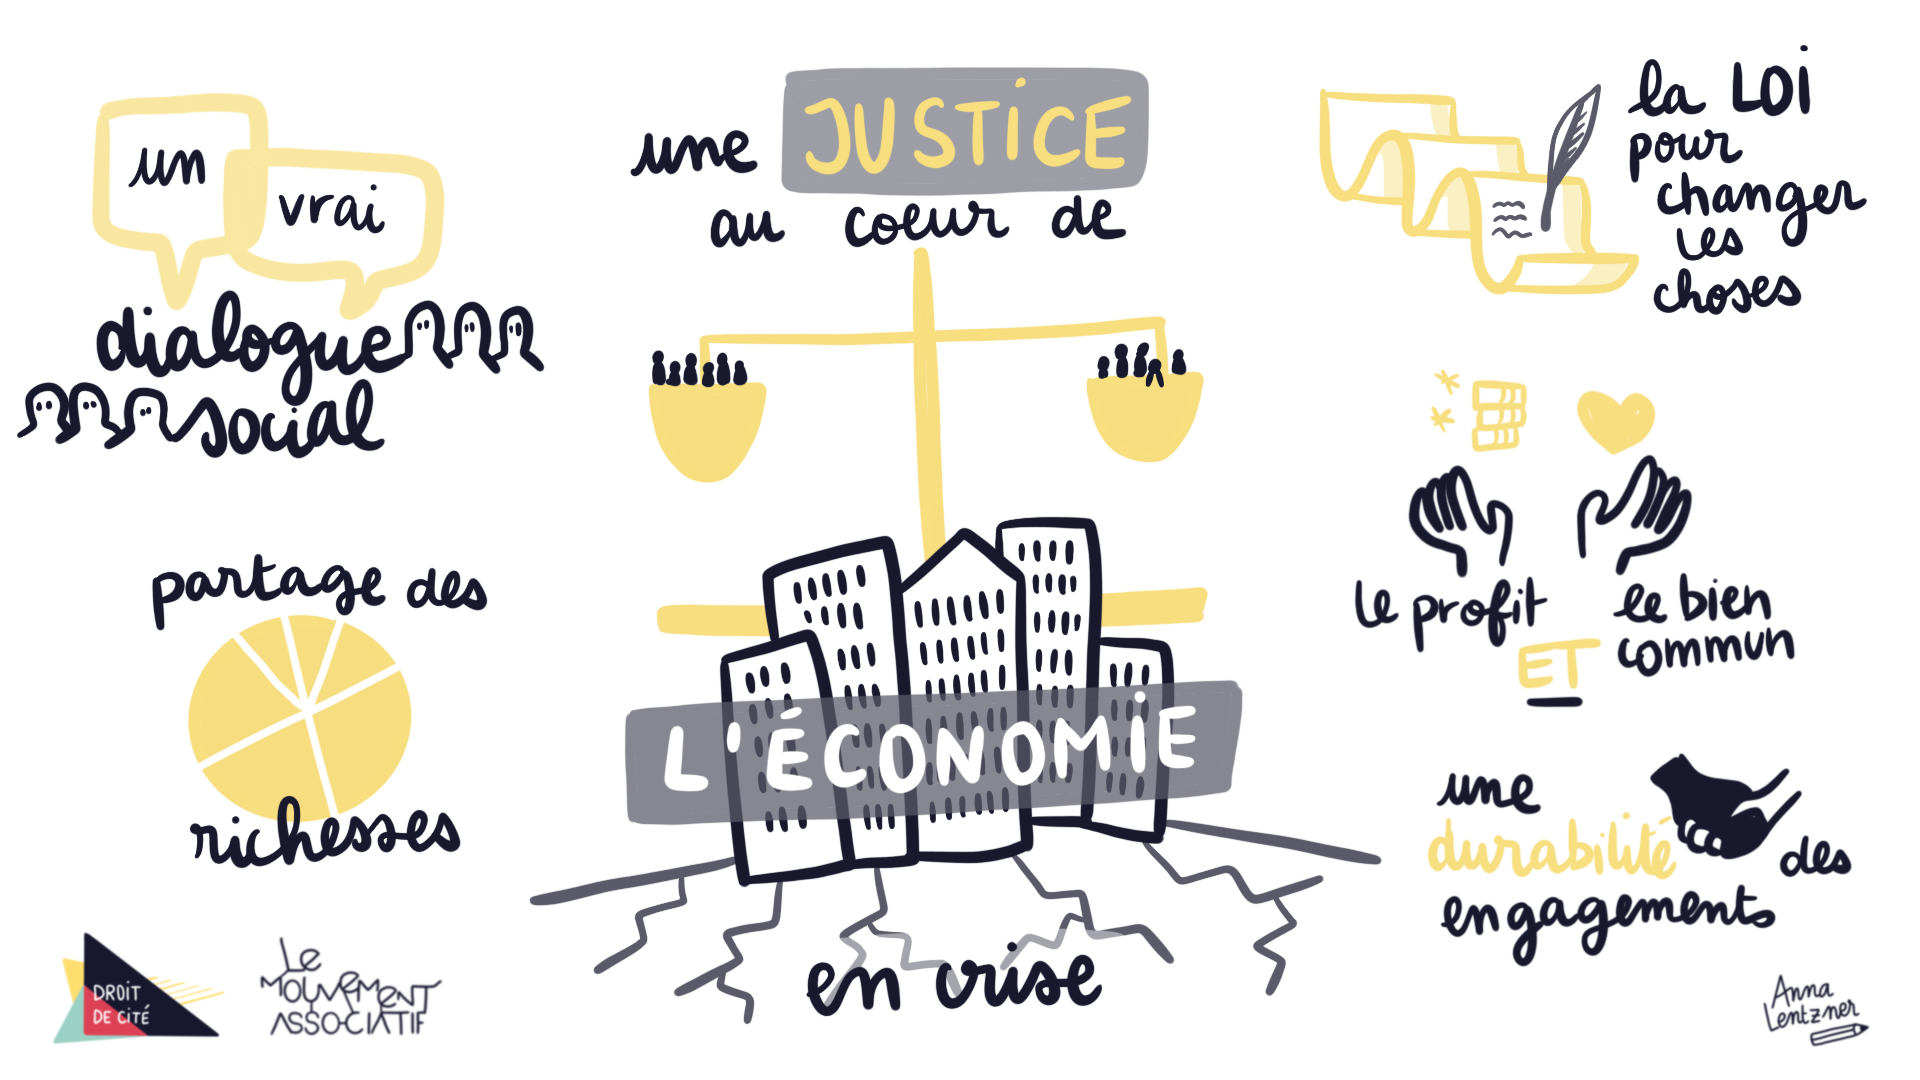 un
vrai
dialogue
social
partage des
richesses
une JUSTICE
au coeur de
L'ÉCONOMIE
en crise
la LOi
pour
changer
les
choses
le profit
ET
le bien
commun
une
durabilité des
engagements
DROIT
DE CITÉ
LE
MOUVEMENT
ASSOCIATIF
Anna
Lentzner